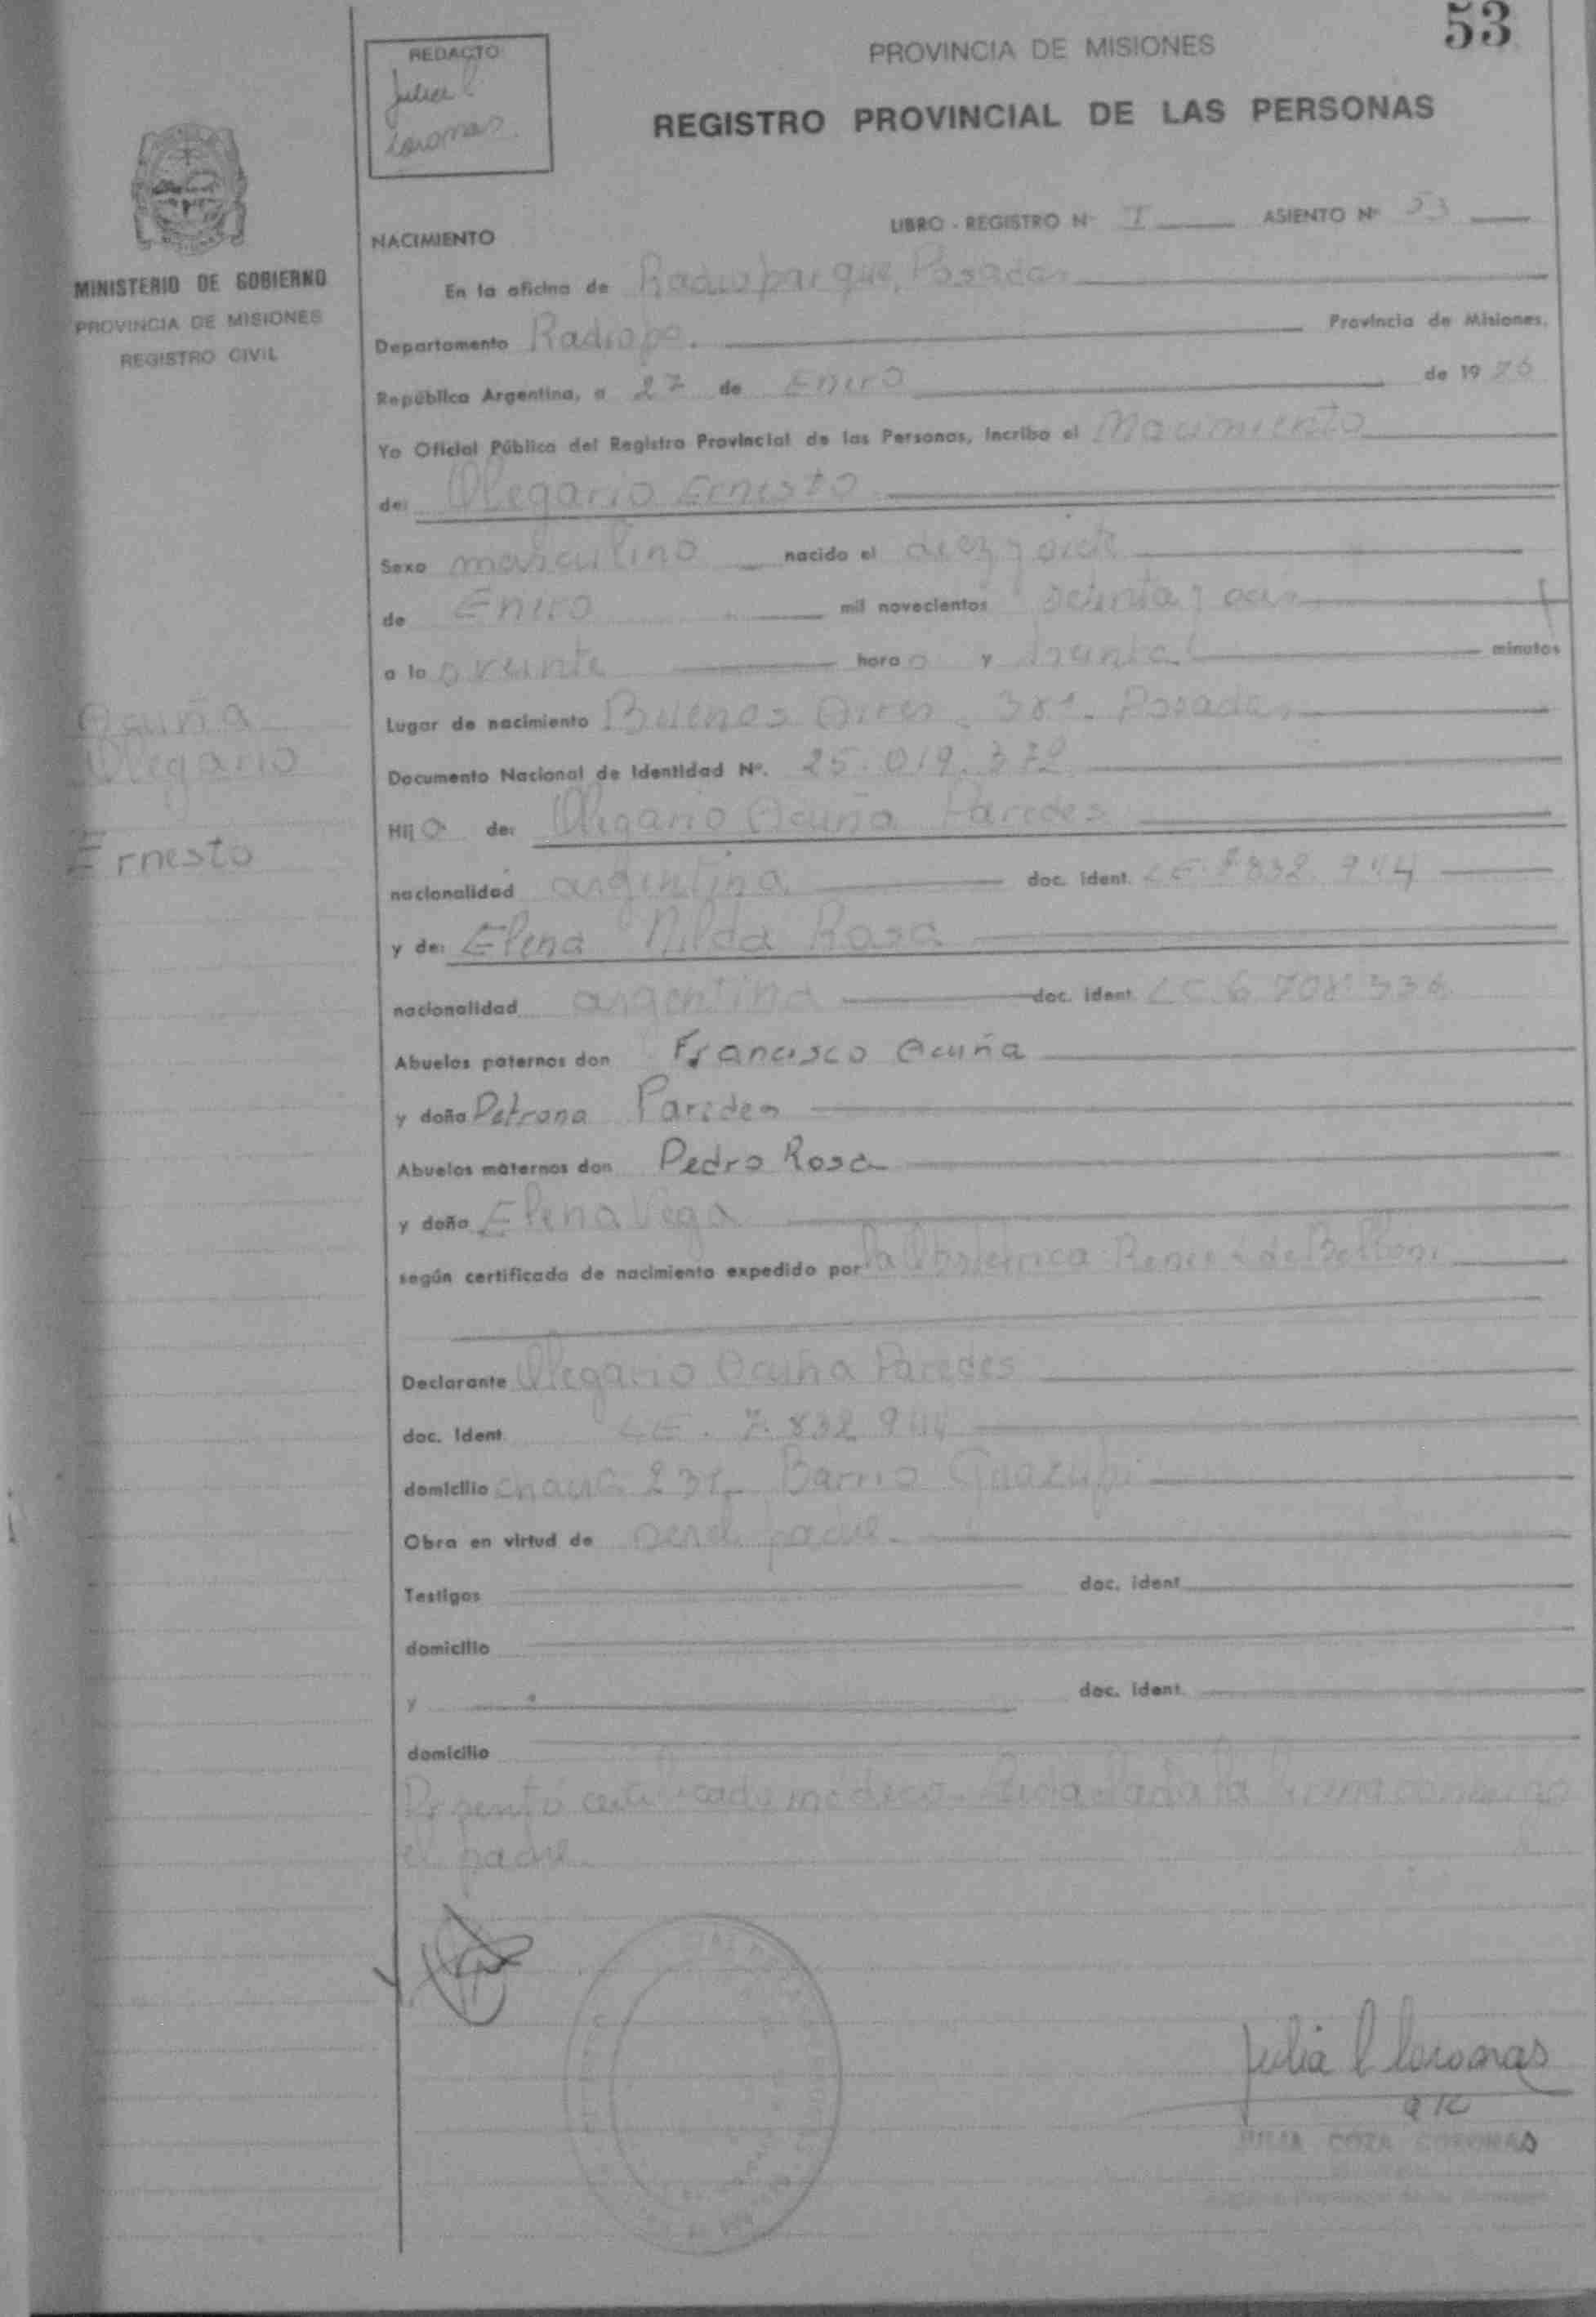 53
REDACTO
Julia C
Coronas
PROVINCIA DE MISIONES
REGISTRO PROVINCIAL DE LAS PERSONAS
MINISTERIO DE GOBIERNO
PROVINCIA DE MISIONES
REGISTRO CIVIL
NACIMIENTO
LIBRO - REGISTRO Nº I ASIENTO Nº 53
En la oficina de Radioparque, Posadas
Departamento Radiopo. Provincia de Misiones,
República Argentina, a 27 de Enero de 1976
Yo Oficial Público del Registro Provincial de las Personas, incribo el Nacimiento
de: Olegario Ernesto
Sexo masculino nacido el diez y siete
de Enero mil novecientos setenta y seis
a las veinte horas y treinta minutos
Lugar de nacimiento Buenos Aires 381 - Posadas
Documento Nacional de Identidad Nº. 25.019.372
Acuña
Olegario
Ernesto
Hijo de: Olegario Acuña Paredes
nacionalidad argentina doc. ident. LE 7832 944
y de: Elena Nilda Rosa
nacionalidad argentina doc. ident. LC 6.708.336
Abuelos paternos don Francisco Acuña
y doña Petrona Paredes
Abuelos maternos don Pedro Rosa
y doña Elena Vega
según certificado de nacimiento expedido por la Obstetrica
Declarante Olegario Acuña Paredes
doc. ident LE. 7.832 944
domicilio chacra 231 - Barrio
Obra en virtud de ser el padre.
Testigos doc. ident
domicilio
y doc. ident.
domicilio
Presentó certificado médico. Leida el acta la firma conmigo
el padre.
Julia C Coronas
JULIA COZA CORONAS